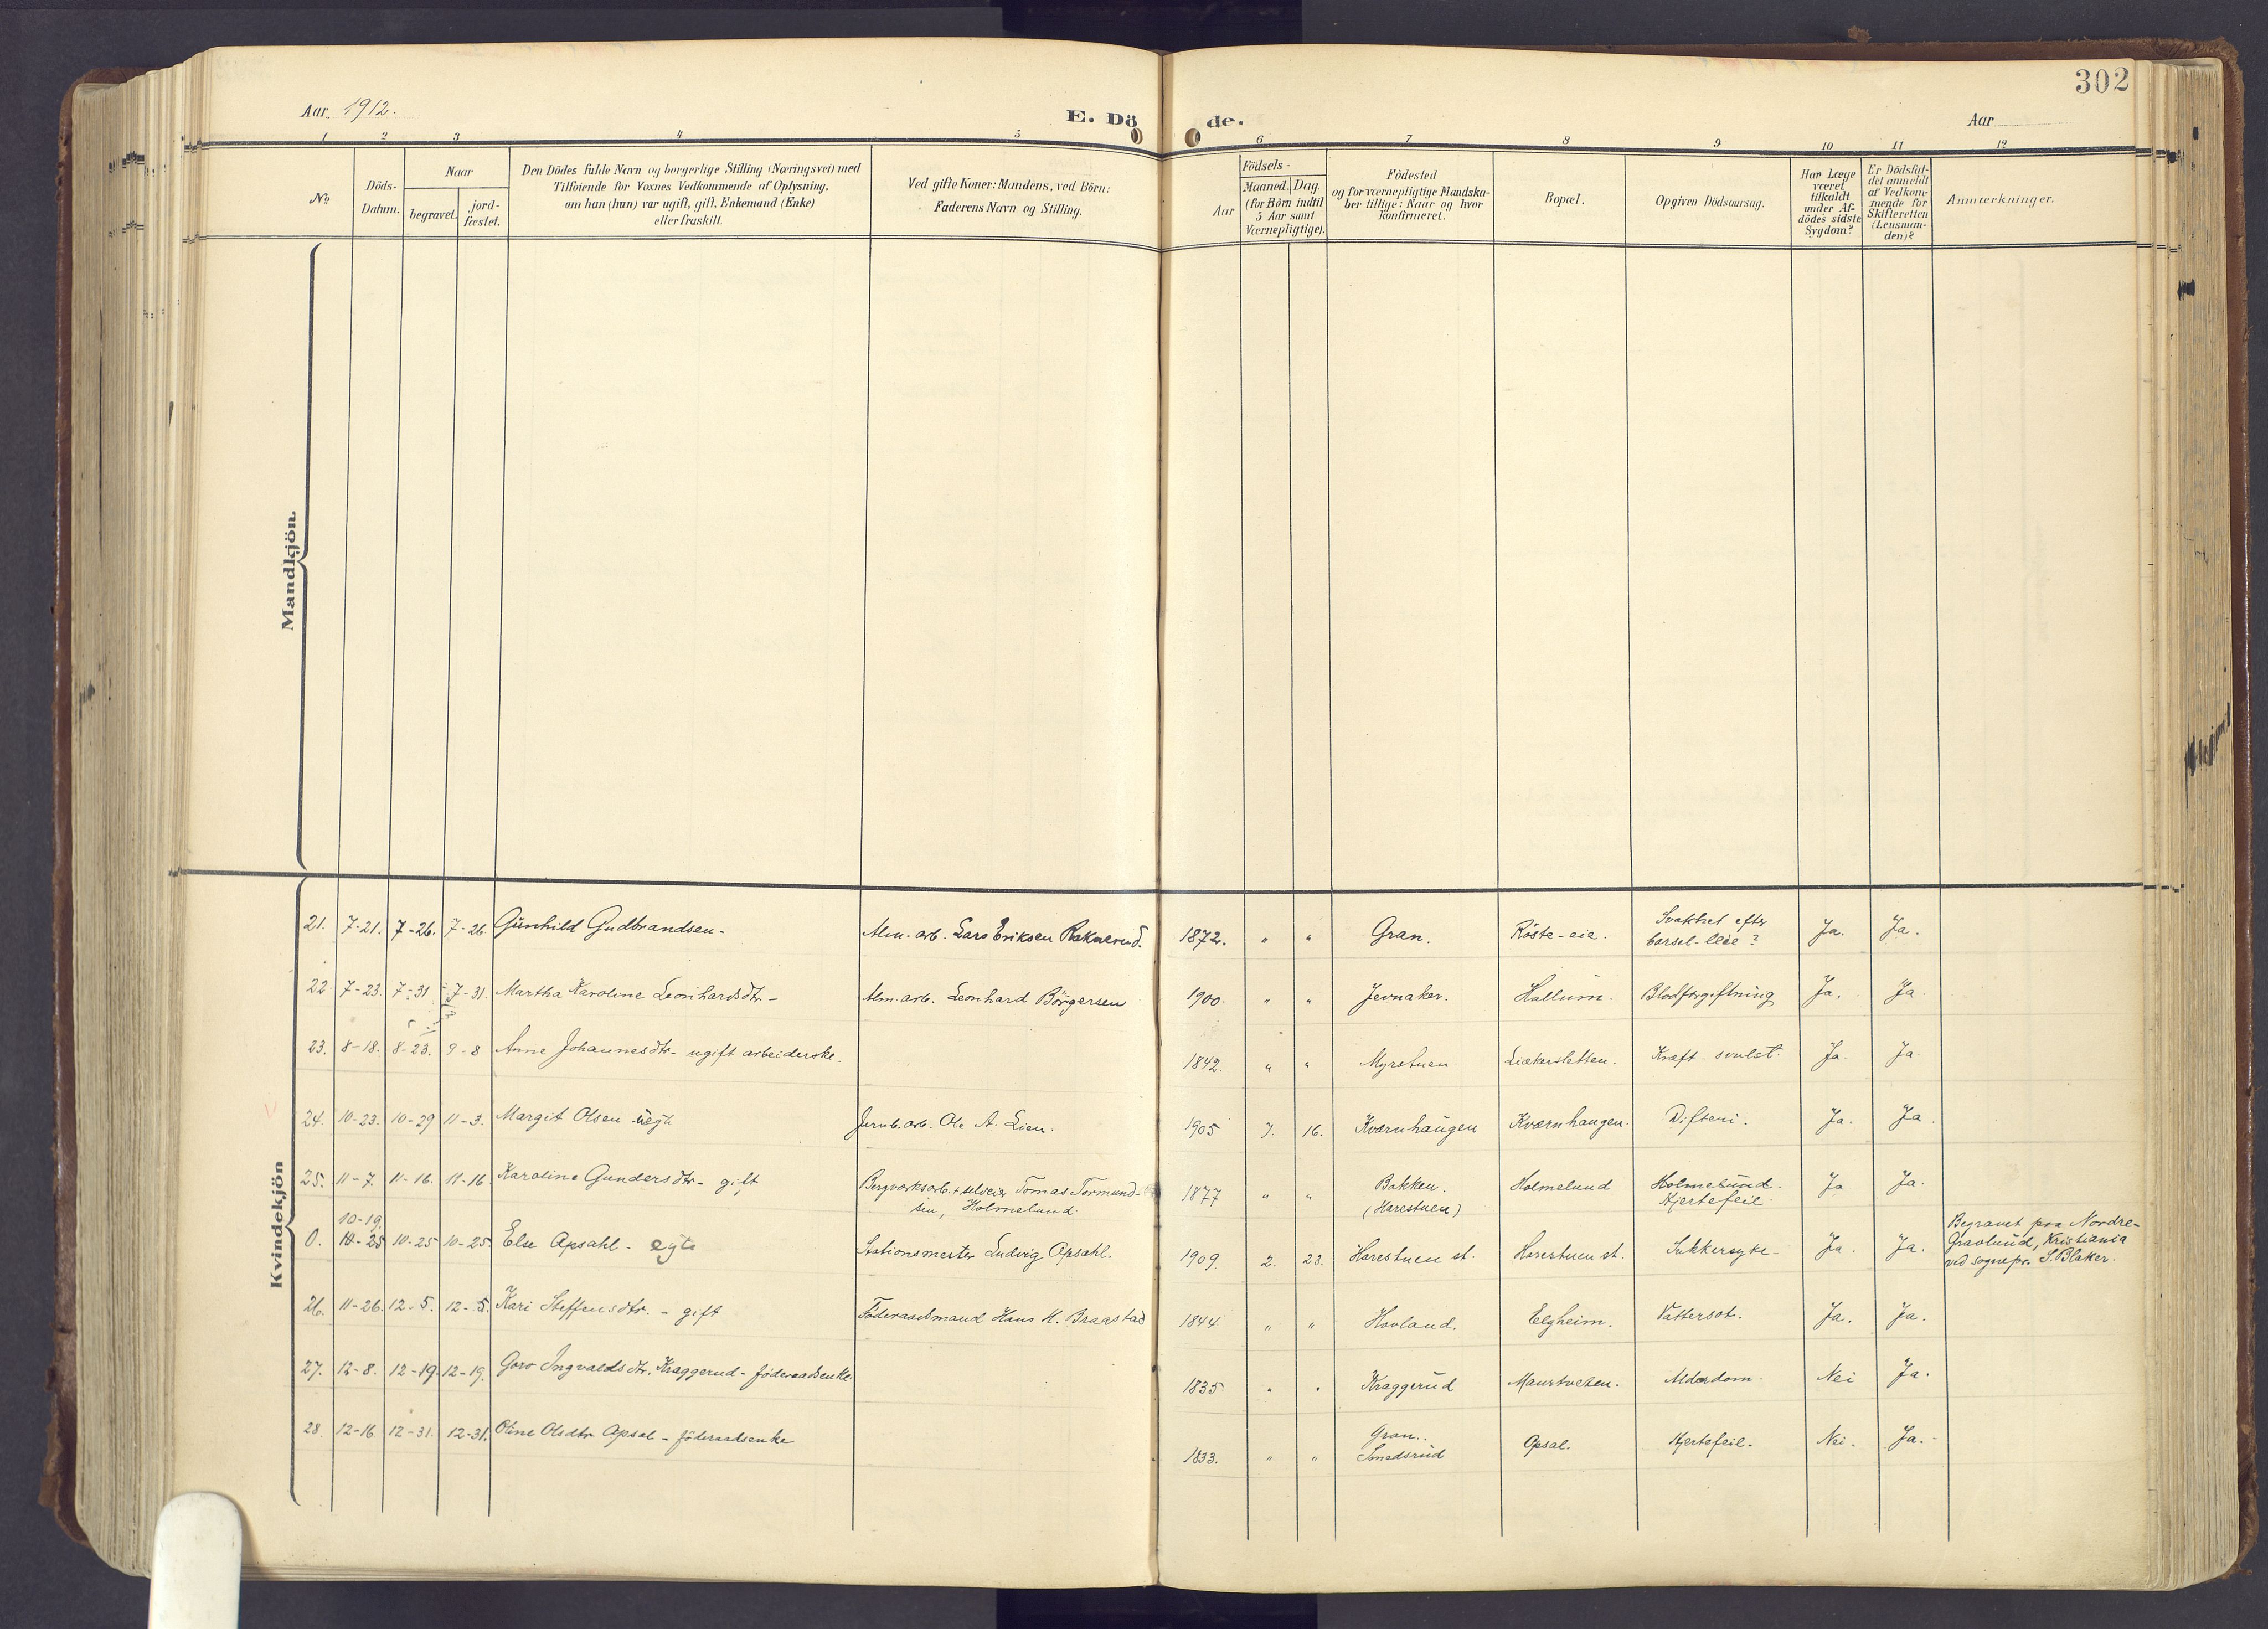 302
Aar 1912.
E. Dö de.
Aar
1 2 3 4 5 6 7 8 9 10 11 12
No.
Döds-
Datum.
Naar
begravet.
jord-
fæstet.
Den Dödes fulde Navn og borgerlige Stilling (Næringsvei) med
Tilföiende for Voxnes Vedkommende af Oplysning,
om han (hun) var ugift, gift, Enkemand (Enke)
eller fraskilt.
Ved gifte Koner: Mandens, ved Börn:
Faderens Navn og Stilling.
Födsels-
Aar
Maaned.
Dag.
(for Börn indtil
5 Aar samt
Værnepligtige).
Födested
og for værnepligtige Mandska-
ber tillige: Naar og hvor
konfirmeret.
Bopæl.
Opgiven Dödsaarsag.
Har Læge
været
tilkaldt
under Af-
dödes sidste
Sygdom?
Er Dödsfal-
det anmeldt
af Vedkom-
mende for
Skifteretten
(Lensman-
den)?
Anmærkninger.
Mandkjön.
Kvindekjön
21. 7-21. 7-26. 7-26 Gunhild Gudbrandsen- Alm. arb. Lars Eriksen Raknerud. 1872. " " Gran. Röste-eie. Svakhet efter
barsel-leie? Ja. Ja.
22. 7-23. 7-31 7-31. Martha Karoline Leonhardsdtr- Alm. arb. Leonhard Börgersen 1900. " " Jevnaker. Hallum. Blodforgiftning Ja, Ja.
23. 8-18. 8-23. 9-8 Anne Johannesdtr- ugift arbeiderske. 1842. " " Myrstuen Liækersletten. Kræft-svulst. Ja. Ja
24. 10-23. 10-29 11-3. Margit Olsen Jernb. arb. Ole A. Lien. 1905 7. 16. Kværnhaugen Kværnhaugen. Difteri. Ja. Ja.
25. 11-7. 11-16. 11-16 Karoline Gundersdtr- gift Bergverksarb. + selveier Tomas Tormund-
sen, Holmelund 1877 " " Bakken.
(Harestuen) Holmelund Holmelund.
Hjertefeil. Ja Ja.
10-19.
0. 10-25 10-25 10-25. Else Apsahl - egte Stationsmester Ludvig Apsahl. 1909. 2. 23. Harestuen st. Harestuen st. Sukkersyke- Ja. Ja. Begravet paa Nordre-
Gravlund, Kristiania
ved sognepr. S. Blaker.
26. 11-26. 12-5. 12-5. Kari Steffensdtr. - gift Föderaadsmand Hans K. Braastad 1844 " " Hovland. Elgheim. Vattersot. Ja. Ja.
27. 12-8. 12-19. 12-19. Goro Ingvaldsdtr. Kraggerud - föderaadsenke. 1835 " " Kraggerud Maurtveten. Alderdom. Nei Ja.
28. 12-16 12-31. 12-31. Oline Olsdtr Apsal - föderaadsenke 1833. " " Gran.
Smedsrud Apsal. Hjertefeil. Nei. Ja.